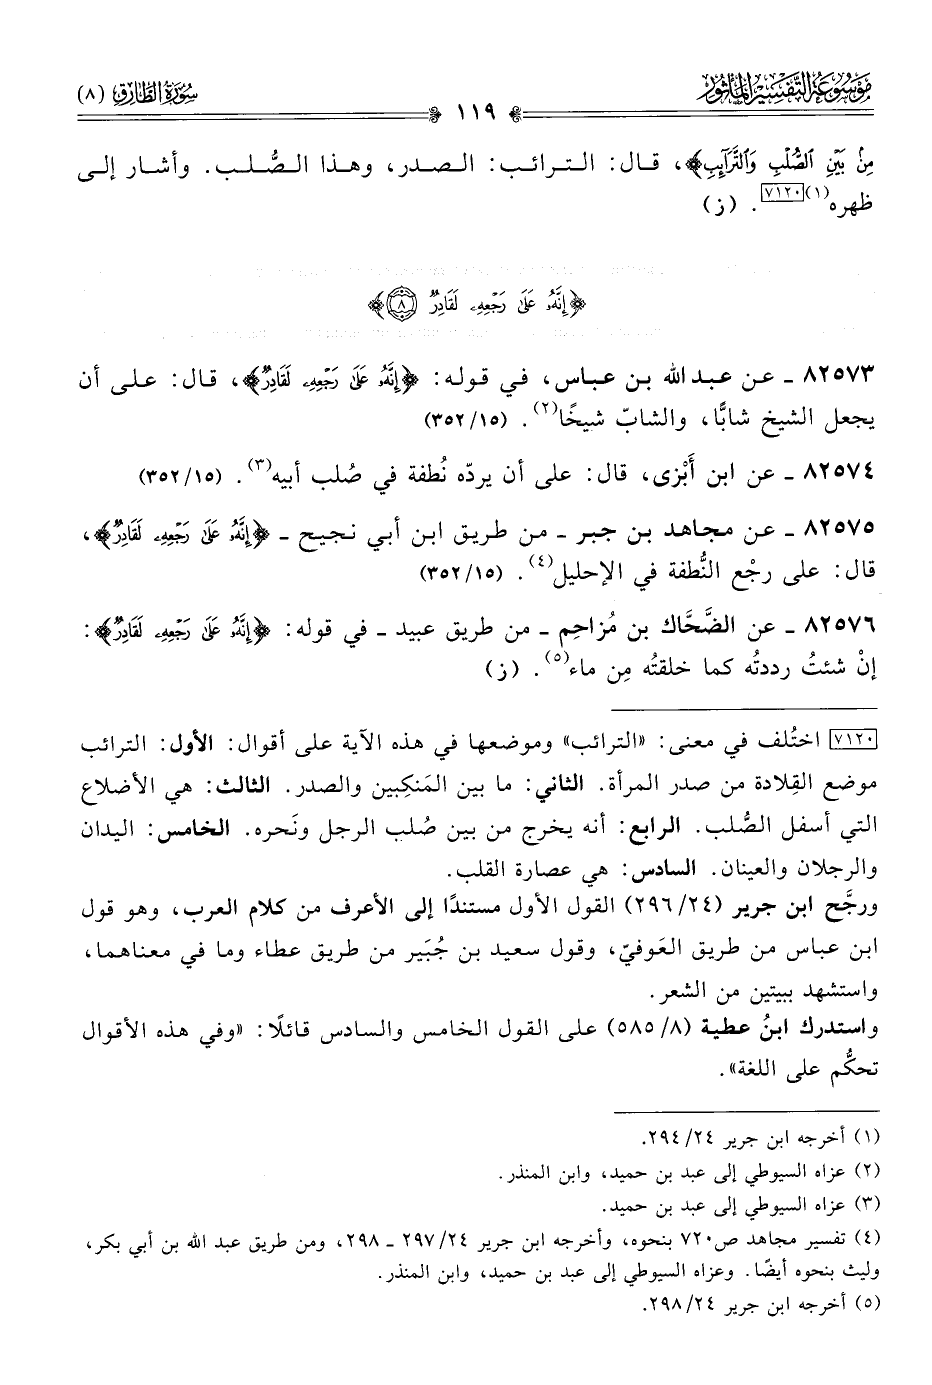 مَوْسُوعَةُ التَّفْسِيْرِ المَأْثُورِ
سُورَةُ الطَّارِقِ (٨)
١١٩
مِنْ بَيْنِ الصُّلْبِ وَالتَّرَائِبِ﴾، قال: الترائب: الصدر، وهذا الصُّلب. وأشار إلى
ظهره(١)[٧١٢٠]. (ز)
﴿إِنَّهُ عَلَى رَجْعِهِ لَقَادِرٌ ٨﴾
٨٢٥٧٣ ـ عن عبد الله بن عباس، في قوله: ﴿إِنَّهُ عَلَى رَجْعِهِ لَقَادِرٌ﴾، قال: على أن
يجعل الشيخ شابًّا، والشابّ شيخًا(٢). (٣٥٢/١٥)
٨٢٥٧٤ ـ عن ابن أَبْزى، قال: على أن يردّه نُطفة في صُلب أبيه(٣). (٣٥٢/١٥)
٨٢٥٧٥ ـ عن مجاهد بن جبر ـ من طريق ابن أبي نجيح ـ ﴿إِنَّهُ عَلَى رَجْعِهِ لَقَادِرٌ﴾،
قال: على رجْع النُّطفة في الإحليل(٤). (٣٥٢/١٥)
٨٢٥٧٦ ـ عن الضَّحَّاك بن مُزاحِم ـ من طريق عبيد ـ في قوله: ﴿إِنَّهُ عَلَى رَجْعِهِ لَقَادِرٌ﴾:
إنْ شئتُ رددتُه كما خلقتُه مِن ماء(٥). (ز)
[٧١٢٠] اختُلف في معنى: «الترائب» وموضعها في هذه الآية على أقوال: الأول: الترائب
موضع القِلادة من صدر المرأة. الثاني: ما بين المَنكِبين والصدر. الثالث: هي الأضلاع
التي أسفل الصُّلب. الرابع: أنه يخرج من بين صُلب الرجل ونَحره. الخامس: اليدان
والرجلان والعينان. السادس: هي عصارة القلب.
ورجَّح ابن جرير (٢٩٦/٢٤) القول الأول مستندًا إلى الأعرف من كلام العرب، وهو قول
ابن عباس من طريق العَوفيّ، وقول سعيد بن جُبَير من طريق عطاء وما في معناهما،
واستشهد ببيتين من الشعر.
واستدرك ابنُ عطية (٥٨٥/٨) على القول الخامس والسادس قائلًا: «وفي هذه الأقوال
تحكُّم على اللغة».
(١) أخرجه ابن جرير ٢٩٤/٢٤.
(٢) عزاه السيوطي إلى عبد بن حميد، وابن المنذر.
(٣) عزاه السيوطي إلى عبد بن حميد.
(٤) تفسير مجاهد ص٧٢٠ بنحوه، وأخرجه ابن جرير ٢٩٧/٢٤ ـ ٢٩٨، ومن طريق عبد الله بن أبي بكر،
وليث بنحوه أيضًا. وعزاه السيوطي إلى عبد بن حميد، وابن المنذر.
(٥) أخرجه ابن جرير ٢٩٨/٢٤.